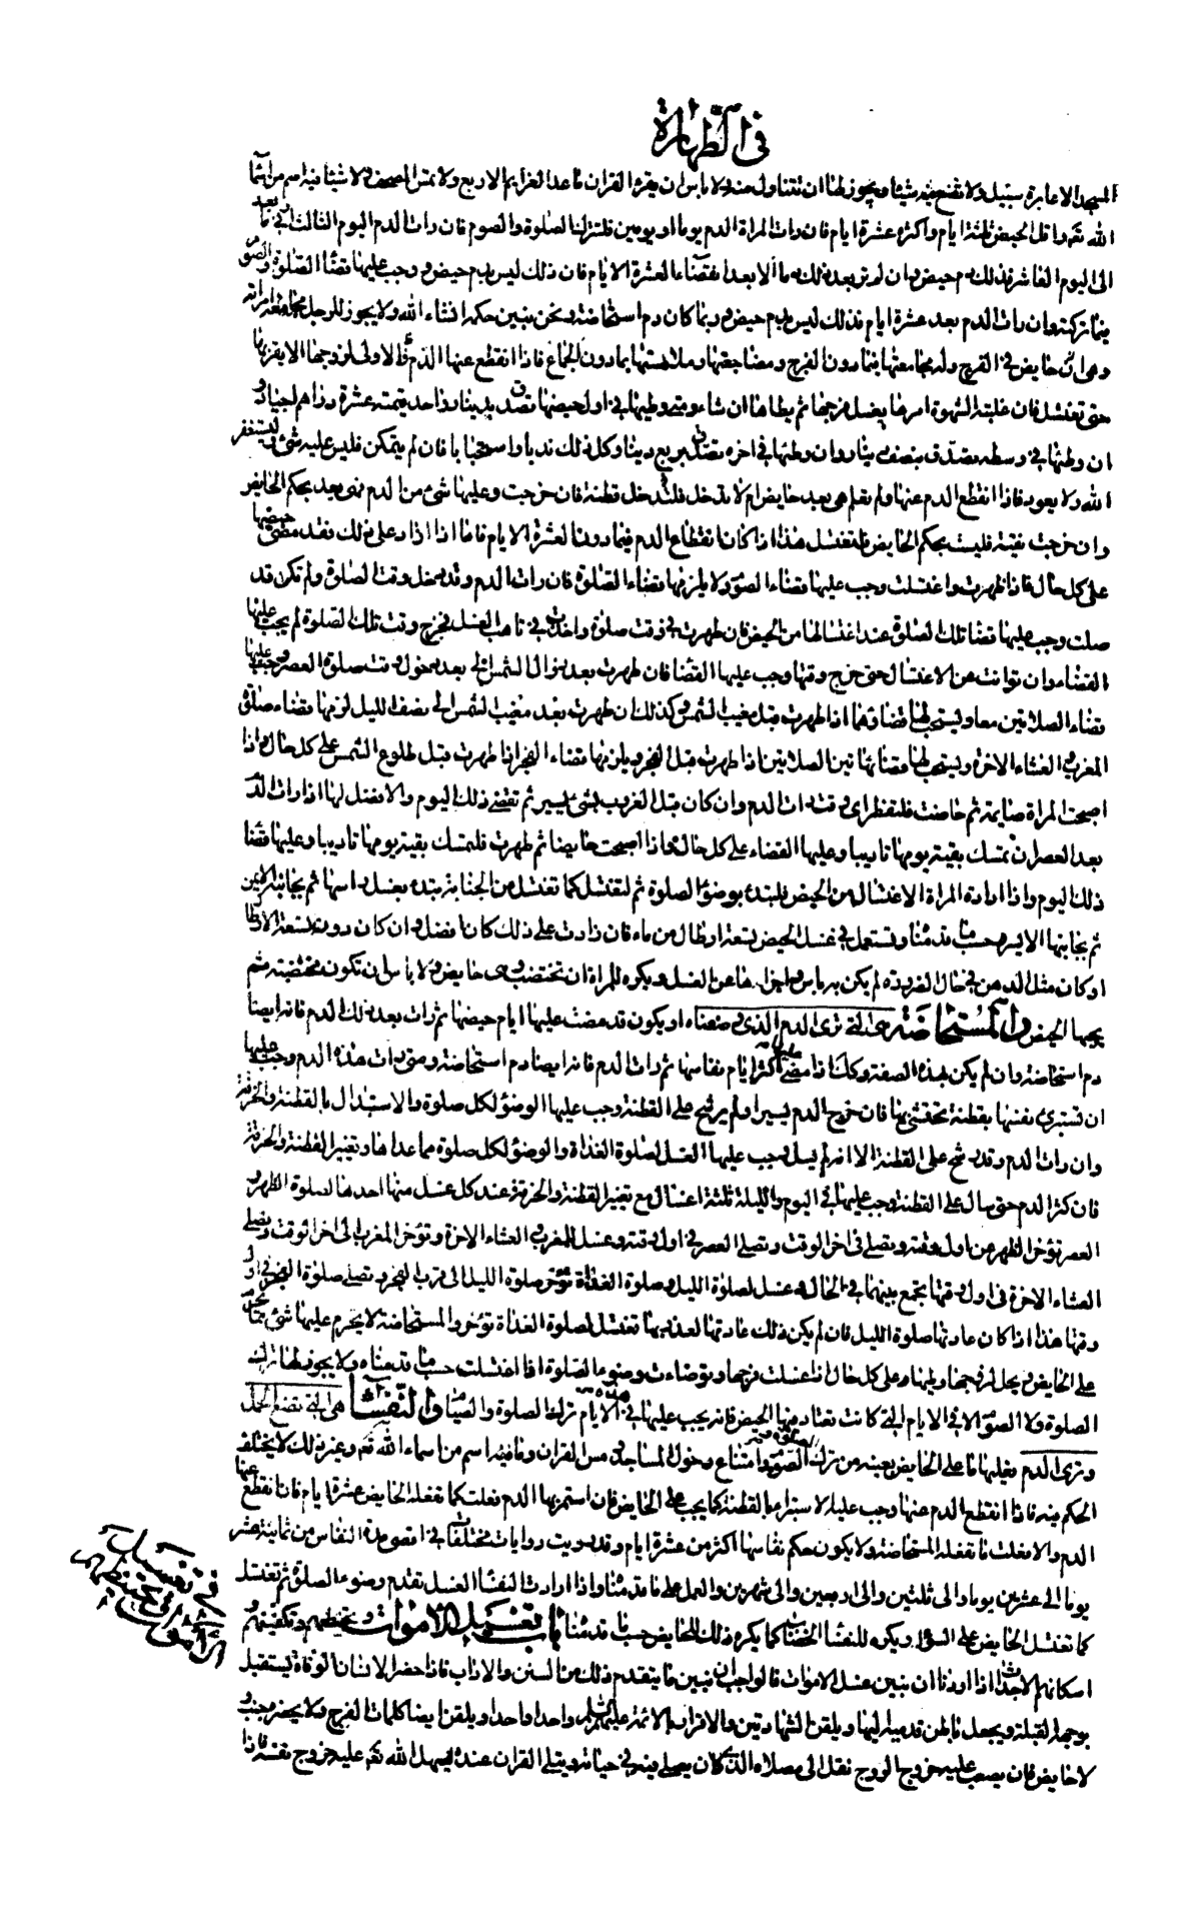 في الطهارة
المسجد الا عابرة سبيل ولا تضع فيه شيئا ويجوز لها ان تتناول منه ولا باس ان يقرء القران ما عدا العزايم الاربع ولا تمس المصحف ولا شيئا فيه اسم من اسماء
الله تعالى واقل الحيض ثلثة ايام واكثره عشرة ايام فان رات المراة الدم يوما او يومين فلتترك الصلوة والصوم فان رات الدم اليوم الثالث او فيما بعد
الى اليوم العاشر فذلك دم حيض وان لم تر بعد ذلك دما الا بعد انقضاء العشرة الايام فان ذلك ليس بدم حيض ووجب عليها قضاء الصلوة والصوم
فيما تركته وان رات الدم بعد عشرة ايام فذلك ليس بدم حيض وربما كان دم استحاضة ونحن نبين حكمه انشاء الله ولا يجوز للرجل مجامعة امراته
وهي حايض في الفرج وله مجامعتها فيما دون الفرج ومضاجعتها وملامستها بما دون الجماع فاذا انقطع عنها الدم فالاولى لزوجها الا يقربها
حتى تغتسل فان غلبته الشهوة امرها بغسل فرجها ثم يطاها ان شاء ومتى وطيها في اول حيضها تصدق بدينار واحد قيمته عشرة دراهم جياد و
ان وطئها في وسطه تصدق بنصف دينار وان وطئها في اخره تصدق بربع دينار وكل ذلك ندبا واستحبابا فان لم يتمكن فليس عليه شئ وليستغفر
الله ولا يعود فاذا انقطع الدم عنها ولم تعلم هي بعد حايض ام لا فلتدخل قطنة فان خرجت وعليها شئ من الدم فهي بعد بحكم الحايض
وان خرجت نقية فليست بحكم الحايض فلتغتسل هذا اذا كان انقطاع الدم فيما دون العشرة الايام فاما اذا زاد على ذلك فقد مضى حيضها
على كل حال فاذا طهرت واغتسلت وجب عليها قضاء الصوم ولا يلزمها قضاء الصلوة فان رات الدم وقد دخل وقت الصلوة ولم تكن قد
صلت وجب عليها قضا تلك الصلوة عند اغتسالها من الحيض فان طهرت في وقت صلوة واخذت في تاهب الغسل فخرج وقت تلك الصلوة لم يجب عليها
القضاء وان توانت عن الاغتسال حتى خرج وقتها وجب عليها القضا فان طهرت بعد زوال الشمس الى بعد دخول وقت صلوة العصر وجب عليها
قضاء الصلاتين معا ويستحب لها قضاؤهما اذا طهرت قبل مغيب الشمس وكذلك ان طهرت بعد مغيب الشمس الى نصف الليل لزمها قضاء صلوة
المغرب والعشاء الاخرة ويستحب لها قضاء هاتين الصلاتين اذا طهرت قبل الفجر ويلزمها قضاء الفجر اذا طهرت قبل طلوع الشمس على كل حال واذا
اصبحت المراة صايمة ثم حاضت فلتفطر اي وقت رات الدم وان كان قبل الغروب بشئ يسير ثم تقضي ذلك اليوم والافضل لها اذا رات الدم
بعد العصر ان تمسك بقية يومها تاديبا وعليها القضاء على كل حال واذا اصبحت حايضا ثم طهرت فلتمسك بقية يومها تاديبا وعليها قضا
ذلك اليوم واذا ارادت المراة الاغتسال من الحيض فلتبتدء بوضوء الصلوة ثم لتغتسل كما تغتسل من الجنابة تبتدء بغسل راسها ثم بجانبها الايمن
ثم بجانبها الايسر حسب ما قدمنا وتستعمل في غسل الحيض تسعة ارطال من ماء فان زادت على ذلك كان افضل وان كان دون تسعة الارطال
او كان مثل الدهن في حال الضرورة لم يكن به باس واجزاءها عن الغسل ويكره للمراة ان تختضب وهي حايض ولا باس ان تكون مختضبة ثم
يجيها الحيض والمستحاضة هي التي ترى الدم الذي وصفناه او يكون قد مضت عليها ايام حيضها ثم رات بعد ذلك الدم فانه ايضا
دم استحاضة وان لم يكن بهذه الصفة وكك اذا مضى عليها اكثر ايام نفاسها ثم رات الدم فانه ايضا دم استحاضة ومتى رات هذه الدم وجب عليها
ان تستبرئ نفسها بقطنة تحتشي بها فان خرج الدم يسيرا ولم يرشح على القطنة وجب عليها الوضوء لكل صلوة والاستبدال بالقطنة والخرقة
وان رات الدم وقد رشح على القطنة الا انه لم يسل وجب عليها الغسل لصلوة الغداة والوضوء لكل صلوة مما عداها وتغيير القطنة والخرقة
فان كثر الدم حتى سال على القطنة وجب عليها في اليوم والليلة ثلثة اغسال مع تغيير القطنة والخرقة عند كل غسل منها احدها لصلوة الظهر و
العصر تؤخر الظهر من اول وقته وتصلى في اخر الوقت وتصلي العصر في اول وقته وغسل للمغرب والعشاء الاخرة وتؤخر المغرب الى اخر الوقت وتصلى
العشاء الاخرة في اول وقتها تجمع بينهما في الحال وغسل لصلوة الليل وصلوة الغداة تؤخر صلوة الليل الى قرب الفجر وتصلي صلوة الفجر في اول
وقتها هذا اذا كان عادتها صلوة الليل فان لم يكن ذلك عادتها لعذر بها تغتسل لصلوة الغداة تؤخر والمستحاضة لا يحرم عليها شئ مما يحرم
على الحايض ويحل لزوجها وطيها على كل حال اذا غسلت فرجها وتوضات وضوء الصلوة او اغتسلت حسب ما قدمناه ولا يجوز لها ترك
الصلوة ولا الصوم الا في الايام التي كانت تعتاد فيها الحيض فانه يجب عليها في هذه الايام ترك الصلوة والصيام والنفساء هي التي تضع الحمل
وترى الدم فعليها ما على الحايض بعينه من ترك الصلوة والصوم وامتناع دخول المساجد ومس القران وما فيه اسم من اسماء الله تعالى وغير ذلك لا يختلف
الحكم فيه فاذا انقطع الدم عنها وجب عليها الاستبراء بالقطنة كما يجب على الحايض فان استمر بها الدم فعلت كما تفعله الحايض عشرة ايام فان انقطع عنها
الدم والا فعلت ما تفعله المستحاضة ولا يكون حكم نفاسها اكثر من عشرة ايام وقد رويت روايات مختلفات في اقصى مدة النفاس من ثمانية عشر
يوما الى عشرين يوما والى ثلثين والى اربعين والى شهرين والعمل على ما قدمنا واذا ارادت النفساء الغسل تقدم وضوء الصلوة ثم تغتسل
كما تغتسل الحايض على السواء ويكره للنفساء الخضاب كما يكره ذلك للحايض حسب ما قدمنا باب تغسيل الاموات وتحنيطهم وتكفينهم و
اسكانهم الاجداث اذا اردنا ان نبين غسل الاموات فالواجب ان نبين ما يتقدم ذلك من السنن والاداب فاذا حضر الانسان الوفاة يستقبل
بوجهه القبلة ويجعل باطن قدميه اليها ويلقن الشهادتين والاقرار بالائمة عليهم السلم واحدا واحدا ويلقن ايضا كلمات الفرج ولا يحضره جنب و
لا حايض فان يصعب عليه خروج الروح نقل الى مصلاه الذي كان يصلى فيه في حياته ويتلى القران عنده ليسهل الله تعالى عليه خروج نفسه فاذا
في تغسيل
الاموات